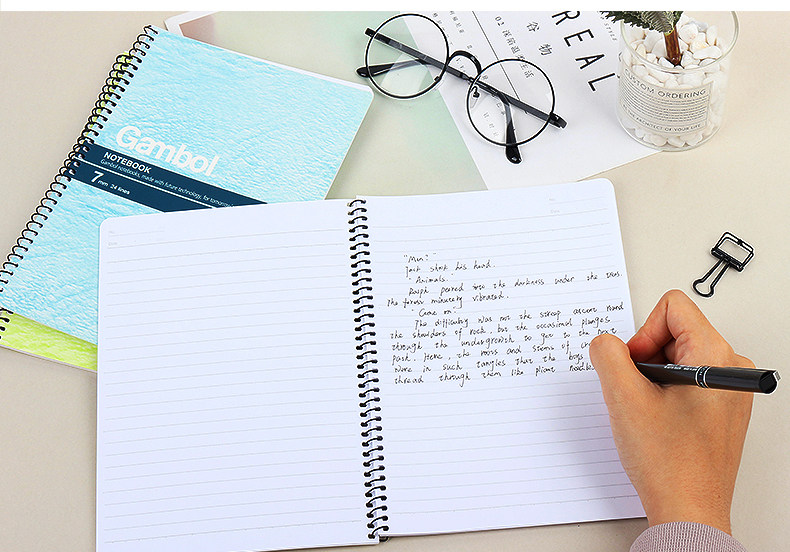 Gambol
NOTEBOOK
Gambol notebooks, made with future technology, for tomorrow
7mm 24 lines
02 深前温生活
谷物
REAL
CUSTOM ORDERING
THE ARCHITECT OF YOUR LIFE
"Men?"
Jack shook his head.
"Animals."
Ralph peered into the darkness under the trees.
The forest minutely vibrated.
"Come on."
The difficulty was not the steep ascent round
the shoulders of rock, but the occasional plunges
through the undergrowth to get to the next
path. Here, the roots and stems of cr
were in such tangles that the boys
thread through them like pliant needles.